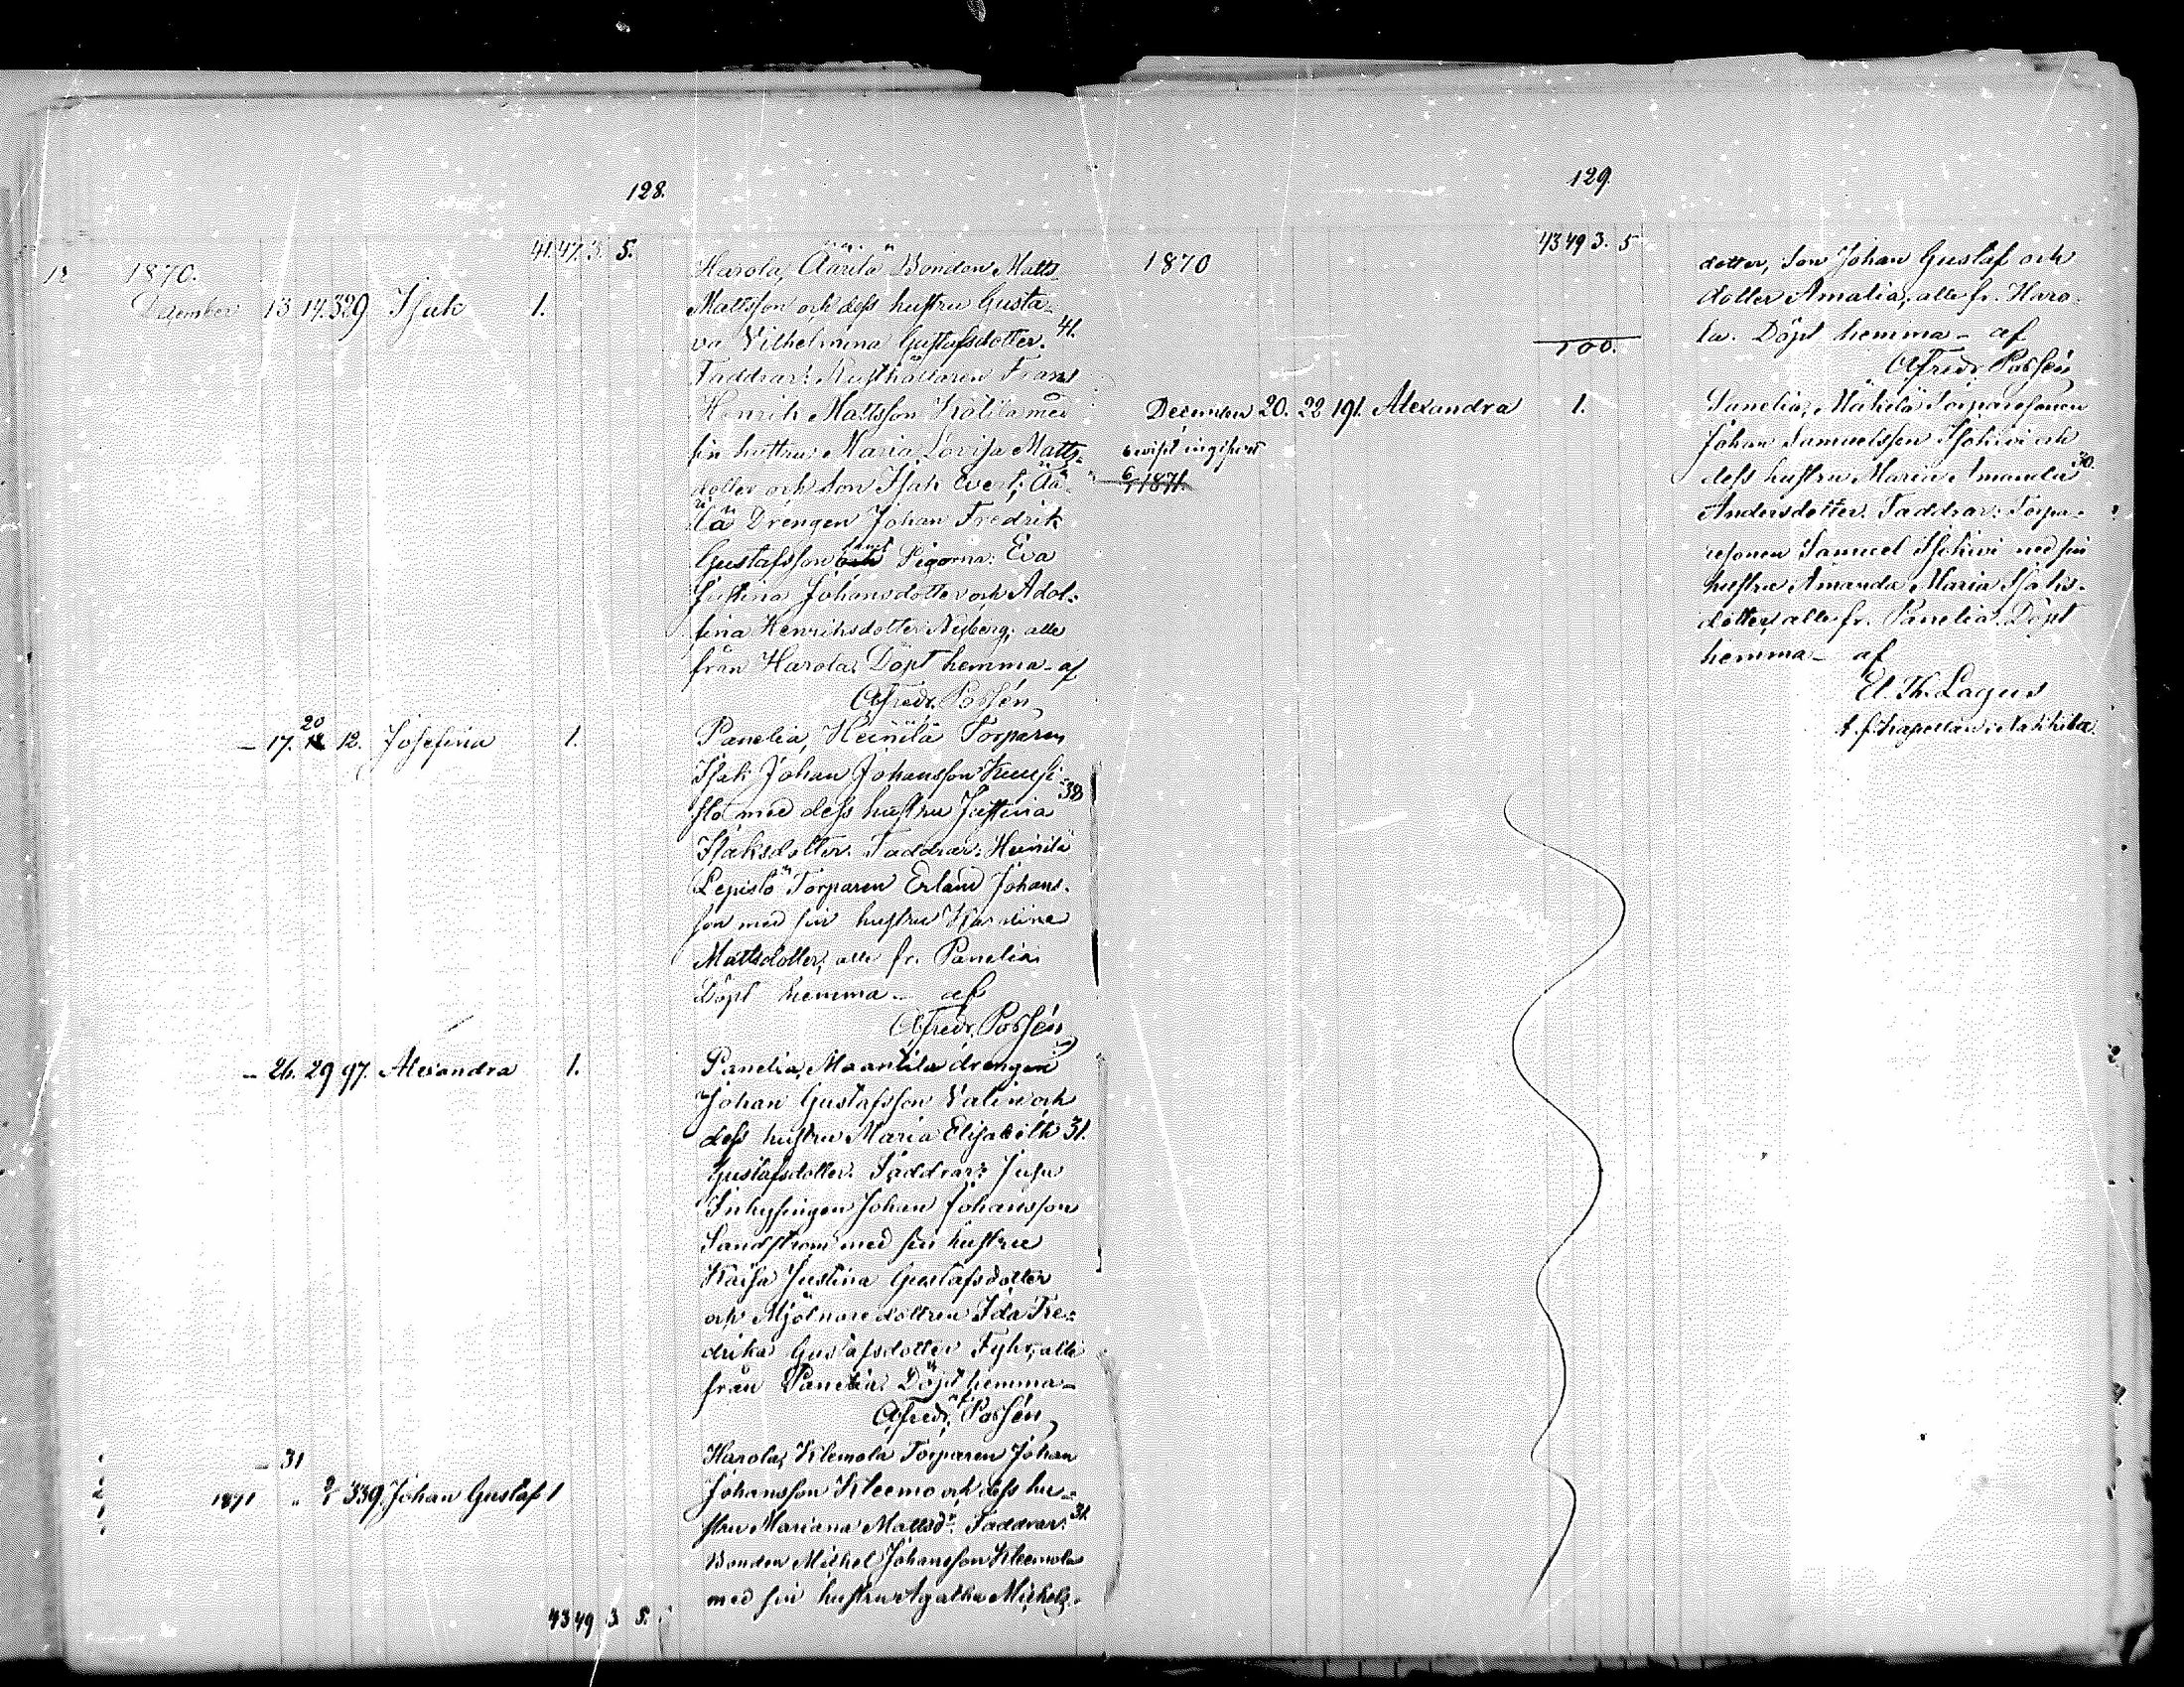 128.
41. 47. 3. 5.
12 1870.
December 13. 14. 329 Isak 1.
Harola, Äärilä Bonden Matts
Mattsson och dess hustru Gusta-
va Vilhelmina Gustafsdotter. 41.
Faddrar: Rusthållaren Frans
Henrik Mattsson med
sin hustru Maria Lovisa Matts-
dotter och son Isak Evert; Ää-
rilä Drengen Johan Fredrik
Gustafsson samt Pigorna: Eva
Justina Johansdotter och Adol-
fina Henriksdotter Nyberg; alla
från Harola. Döpt hemma - af
Alfredr. Possén
- 17. 20 12. Josefina 1.
Panelia, Heinilä Torparen
Isak Johan Johansson Kuusi-
sto med dess hustru Justina 38
Isaksdotter. Faddrar: Heinilä
Lepistö Torparen Erland Johans-
son med sin hustru
Mattsdotter, alla fr. Panelia.
Döpt hemma - af
Alfredr. Possén
- 26. 29 97. Alexandra 1.
Panelia, Maantila drengen
Johan Gustafsson Valin och
dess hustru Maria Elisabeth 31.
Gustafsdotter. Faddrar:
Inhysingen Johan Johansson
Sandström med sin hustru
Kaisa Justina Gustafsdotter
och Mjölnaredottren Ida Fre-
drika Gustafsdotter Fyhr, alla
från Panelia. Döpt hemma -
af
Alfredr. Possén
- 31
1871 " 2/1 339. Johan Gustaf 1
Harola, Klemola Torparen Johan
Johansson Kleemo och dess hu-
stru Mariana Mattsdr. Faddrar: 31.
Bonden Mickel Johansson Kleemola
med sin hustru Agatha Mickels-
43 49 3. 5.
129.
43 49 3. 5
1870
dotter, Son Johan Gustaf och
dotter Amalia, alla fr. Haro-
la. Döpt hemma - af
100.
Alfredr. Possén
December 20. 22 191. Alexandra 1.
6 1871.
Panelia, Mäkilä Torparesonen
Johan Samuelsson Isokivi och
dess hustru Maria Amanda 30.
Andersdotter. Faddrar: Torpa-
resonen Samuel Isokivi med sin
hustru Amanda Maria Isaks-
dotter, alla fr. Panelia. Döpt
hemma - af
El. Th. Lagus
t. f. kapellan i Nakkila.